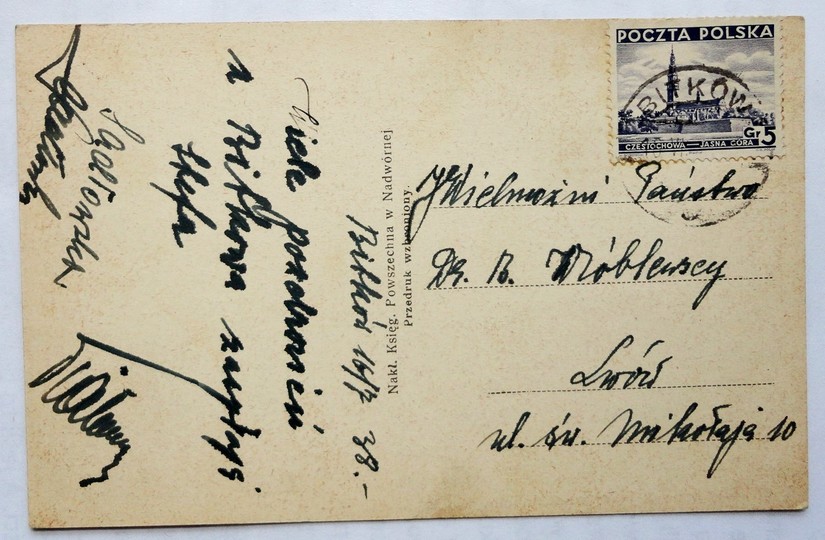 POCZTA POLSKA
CZĘSTOCHOWA—JASNA GÓRA
Gr 5
BITKÓW
JWielmożni Państwo
Dr. B. Wróblewscy
Lwów
ul. św. Mikołaja 10
Nakł. Księg. Powszechna w Nadwórnej
Przedruk wzbroniony.
Bitków 16/7 38.-
Wiele pozdrowień
z Bitkowa
Stefa